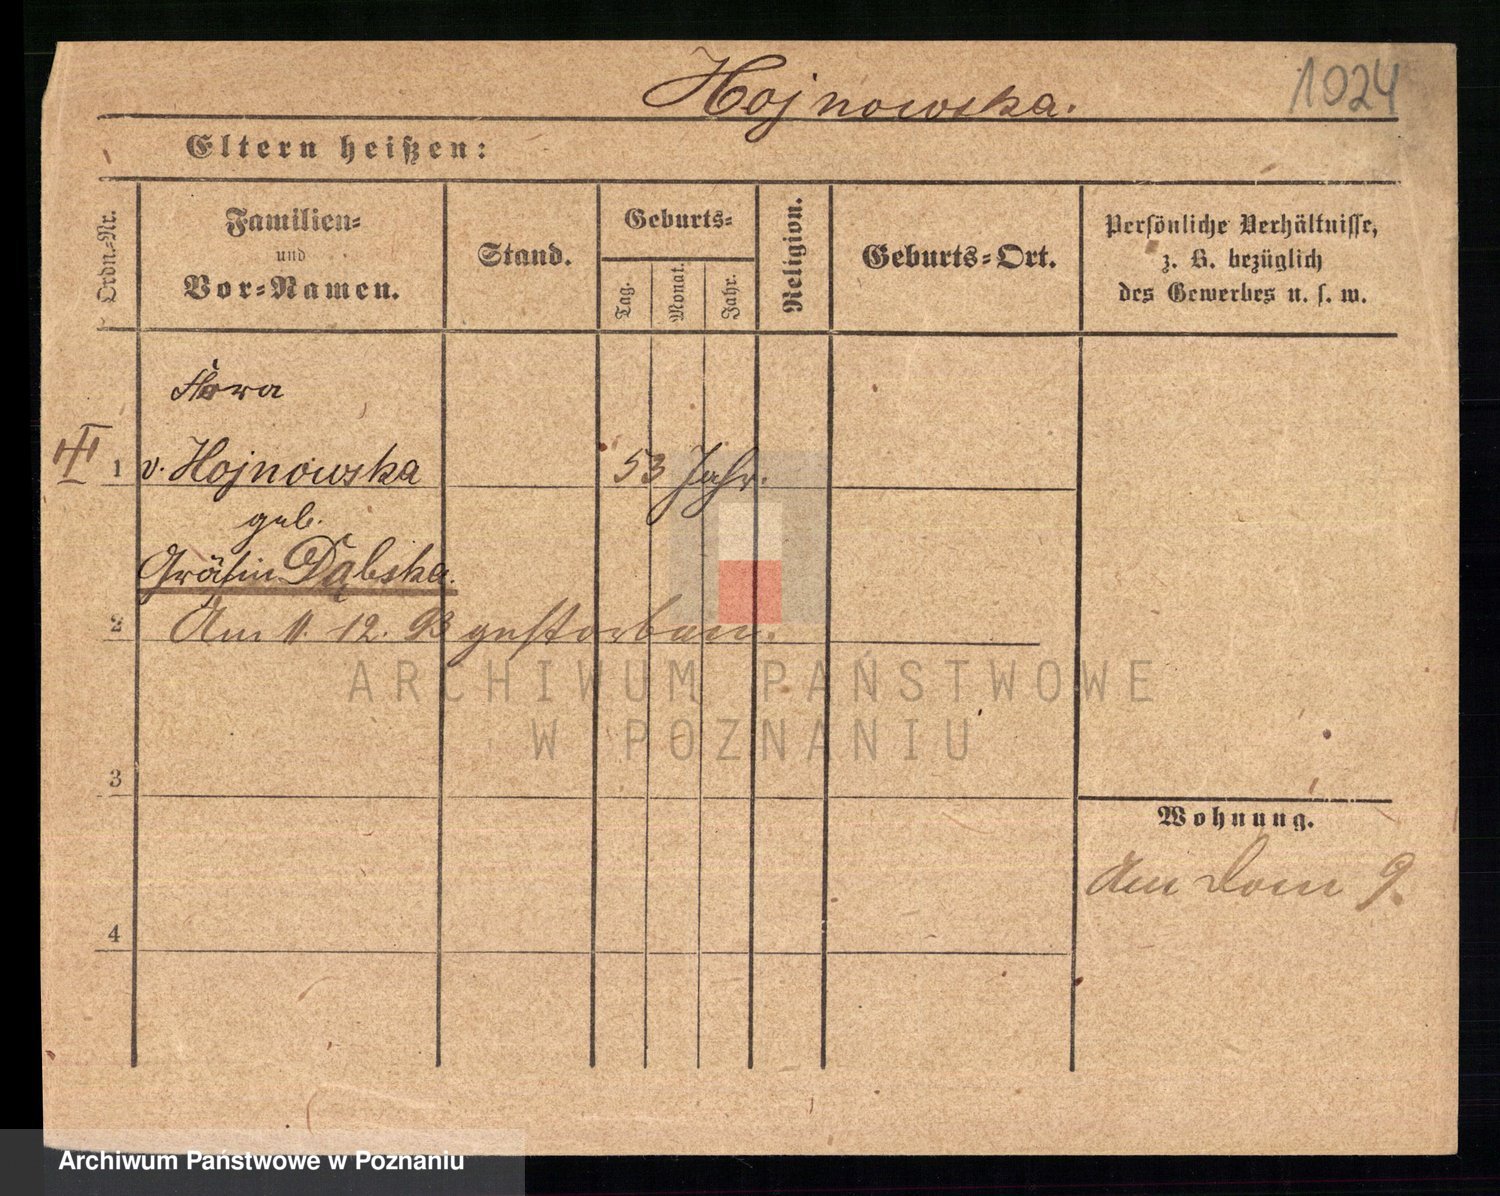 Hojnowska.
1024
Eltern heißen:
Ordn.-Nr.
Familien-
und
Vor-Namen.
Stand.
Geburts-
Tag.
Monat.
Jahr.
Religion.
Geburts-Ort.
Persönliche Verhältnisse,
z. B. bezüglich
des Gewerbes u. s. w.
Flora
III
1 v. Hojnowska 53 Jahr.
geb.
Gräfin Dąbska.
2 Am 11. 12. 93 gestorben.
ARCHIWUM PAŃSTWOWE
W POZNANIU
3
Wohnung.
Am Dom 9.
4
Archiwum Państwowe w Poznaniu